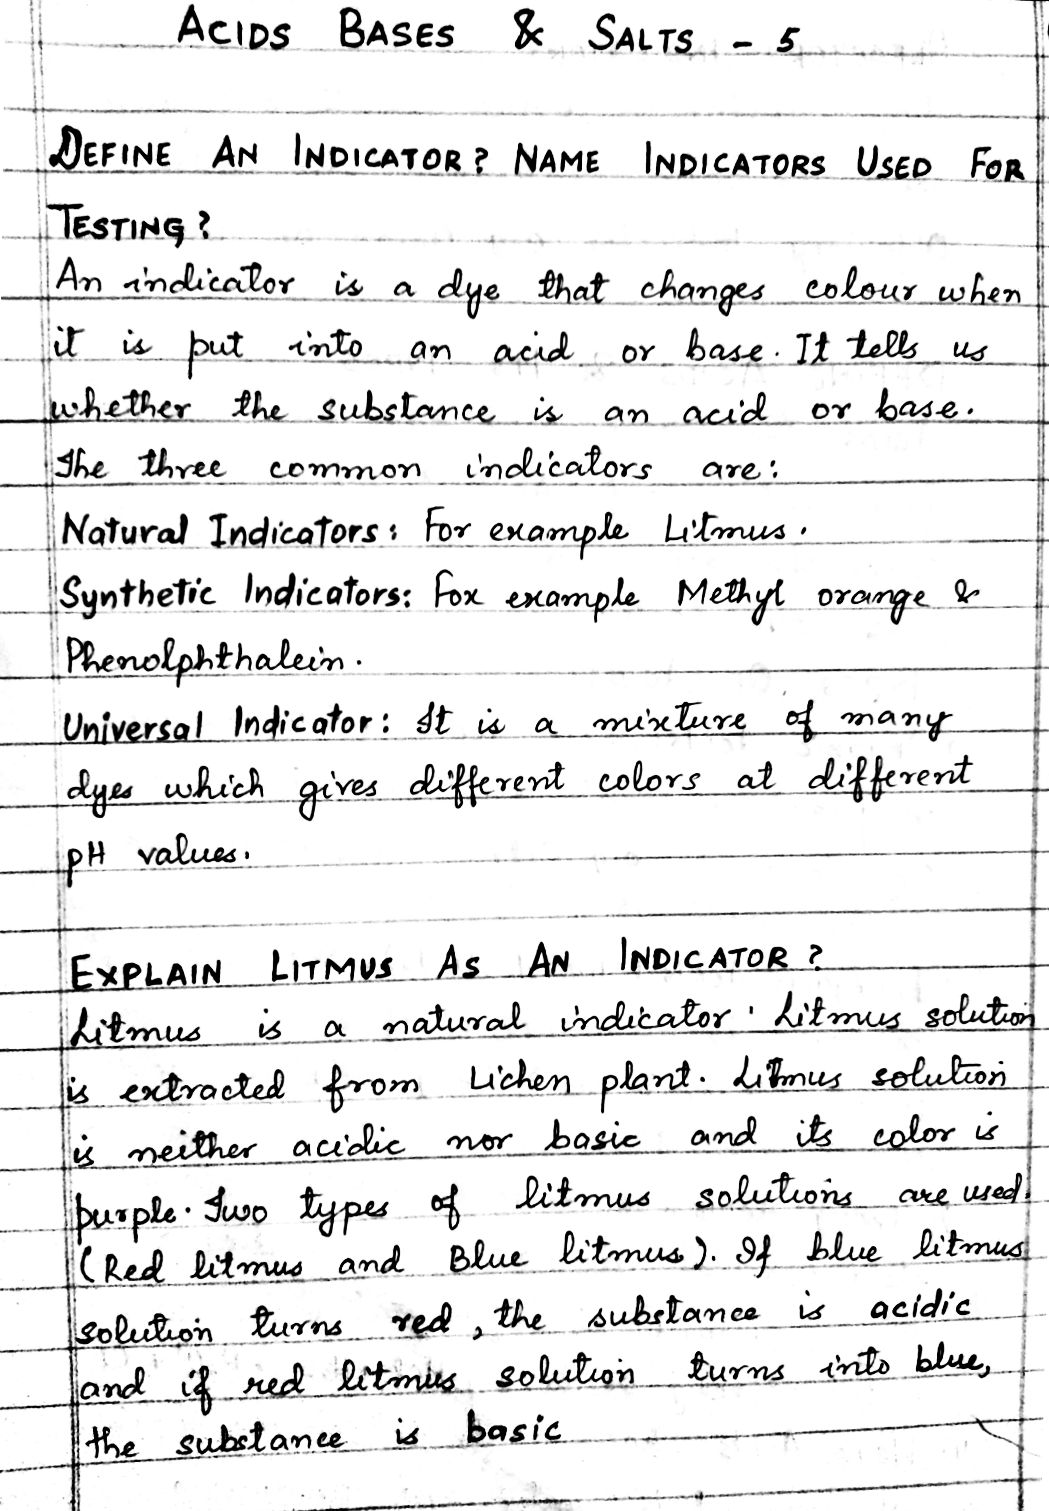 ACIDS BASES & SALTS - 5
DEFINE AN INDICATOR? NAME INDICATORS USED FOR
TESTING?
An indicator is a dye that changes colour when
it is put into an acid or base. It tells us
whether the substance is an acid or base.
The three common indicators are:
Natural Indicators: For example Litmus.
Synthetic Indicators: For example Methyl orange &
Phenolphthalein.
Universal Indicator: It is a mixture of many
dyes which gives different colors at different
pH values.
EXPLAIN LITMUS AS AN INDICATOR?
Litmus is a natural indicator. Litmus solution
is extracted from Lichen plant. Litmus solution
is neither acidic nor basic and its color is
purple. Two types of litmus solutions are used.
(Red litmus and Blue litmus). If blue litmus
solution turns red, the substance is acidic
and if red litmus solution turns into blue,
the substance is basic